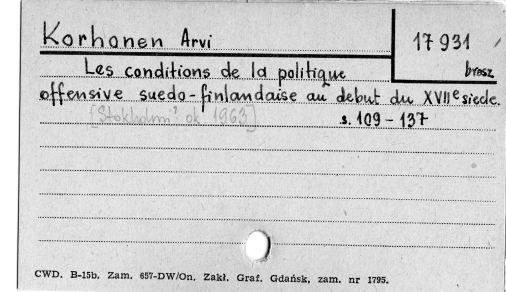 Korhonen Arvi
17 931
brosz
Les conditions de la politique
offensive suedo-finlandaise au debut du XVIIe siecle.
[Stokholm? ok 1963]
s. 109-137
CWD. B-15b. Zam. 657-DW/On. Zakł. Graf. Gdańsk, zam. nr 1795.